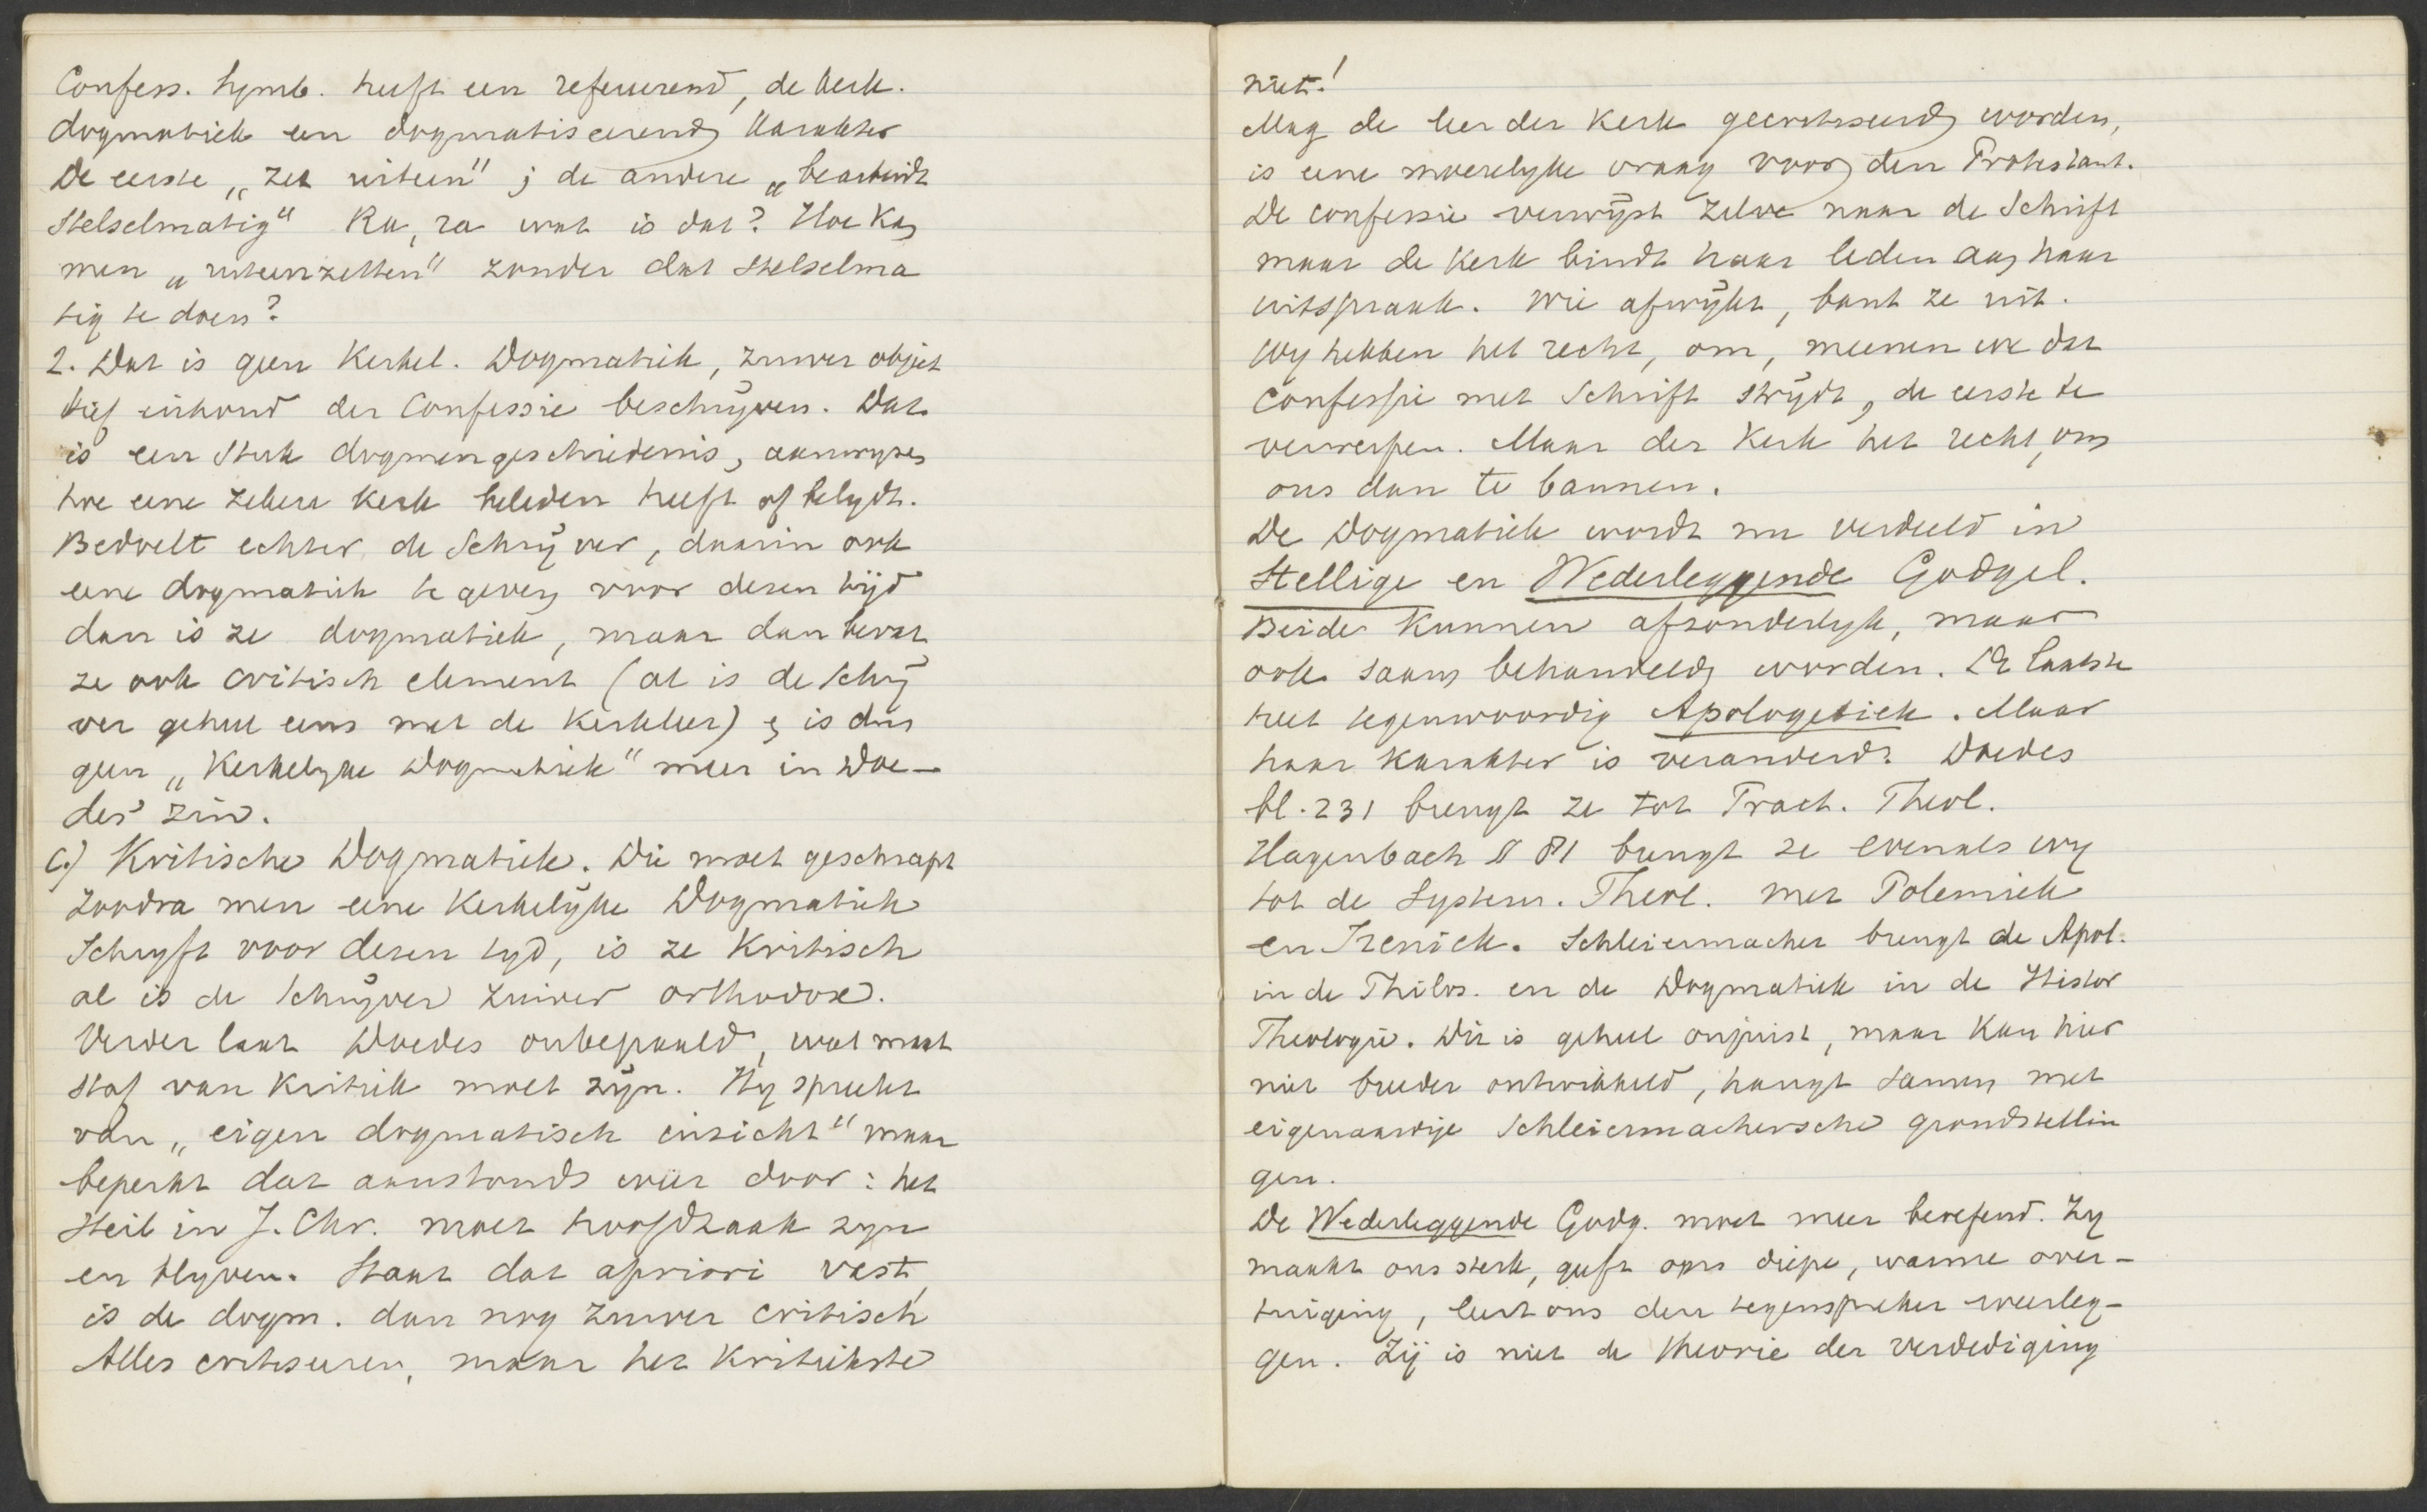 Confess. Symb. heeft een refereerend, de kerk.
dogmatiek een dogmatiseerend karakter
De eerste „zet uiteen"; de andere „bearbeidt
Stelselmatig" Ra, ra wat is dat? Hoe kan
men „uiteenzetten" zonder dat stelselma
tig te doen?
2. Dat is geen Kerkel. Dogmatiek, zuiver objec
tief inhoud der Confessie beschrijven. Dat
is een stuk dogmengeschiedenis, aanwyzen
hoe eene zekere kerk beleden heeft of belydt.
Bedoelt echter de Schrijver, daarin ook
eene dogmatiek te geven voor dezen tijd
dan is ze dogmatiek, maar dan bevat
ze ook critisch element (al is de schrij
ver geheel eens met de kerkleer) en is dus
geen „Kerkelyke Dogmatiek" meer in Doe-
des' zin.
C.) Kritische Dogmatiek. Die moet geschrapt
Zoodra men eene Kerkelijke Dogmatiek
Schryft voor dezen tyd, is ze Kritisch
al is de Schrijver zuiver orthodox.
Verder laat Doedes onbepaald, wat maat
staf van Kritiek moet zijn. Hy spreekt
van „eigen dogmatisch inzicht" maar
beperkt dat aanstonds weer door: het
Heil in J. Chr. moet hoofdzaak zyn
en blyven. Staat dat apriori vast,
is de dogm. dan nog zuiver critisch
Alles critiseeren, maar het Kritiekste
niet!
Mag de leer der Kerk gecritiseerd worden,
is eene moeielyke vraag voor den Protestant.
De confessie verwijst zelve naar de Schrift
maar de Kerk bindt haar leden aan haar
uitspraak. Wie afwijkt, bant ze uit.
Wy hebben het recht, om, meenen we dat
Confessie met Schrift strijdt, de eerste te
verwerpen. Maar der Kerk het recht, om
ons dan te bannen.
De Dogmatiek wordt nu verdeeld in
Stellige en Wederleggende Godgel.
Beide kunnen afzonderlyk, maar
ook saam behandeld worden. De laatste
heet tegenwoordig Apologetiek. Maar
haar karakter is veranderd. Doedes
bl. 231 brengt ze tot Pract. Theol.
Hagenbach § 81 brengt ze evenals wy
tot de System. Theol. met Polemiek
en Irenick. Schleiermacher brengt de Apol.
in de Philos. en de Dogmatiek in de Histor
Theologie. Dit is geheel onjuist, maar kan hier
niet breeder ontwikkeld, hangt samen met
eigenaardige Schleiermachersche grondstellin
gen.
De Wederleggende Godg. moet meer beoefend. Zy
maakt ons sterk, geeft ons diepe, warme over-
tuiging, leert ons den tegenspreker weerleg-
gen. Zij is niet de theorie der verdediging